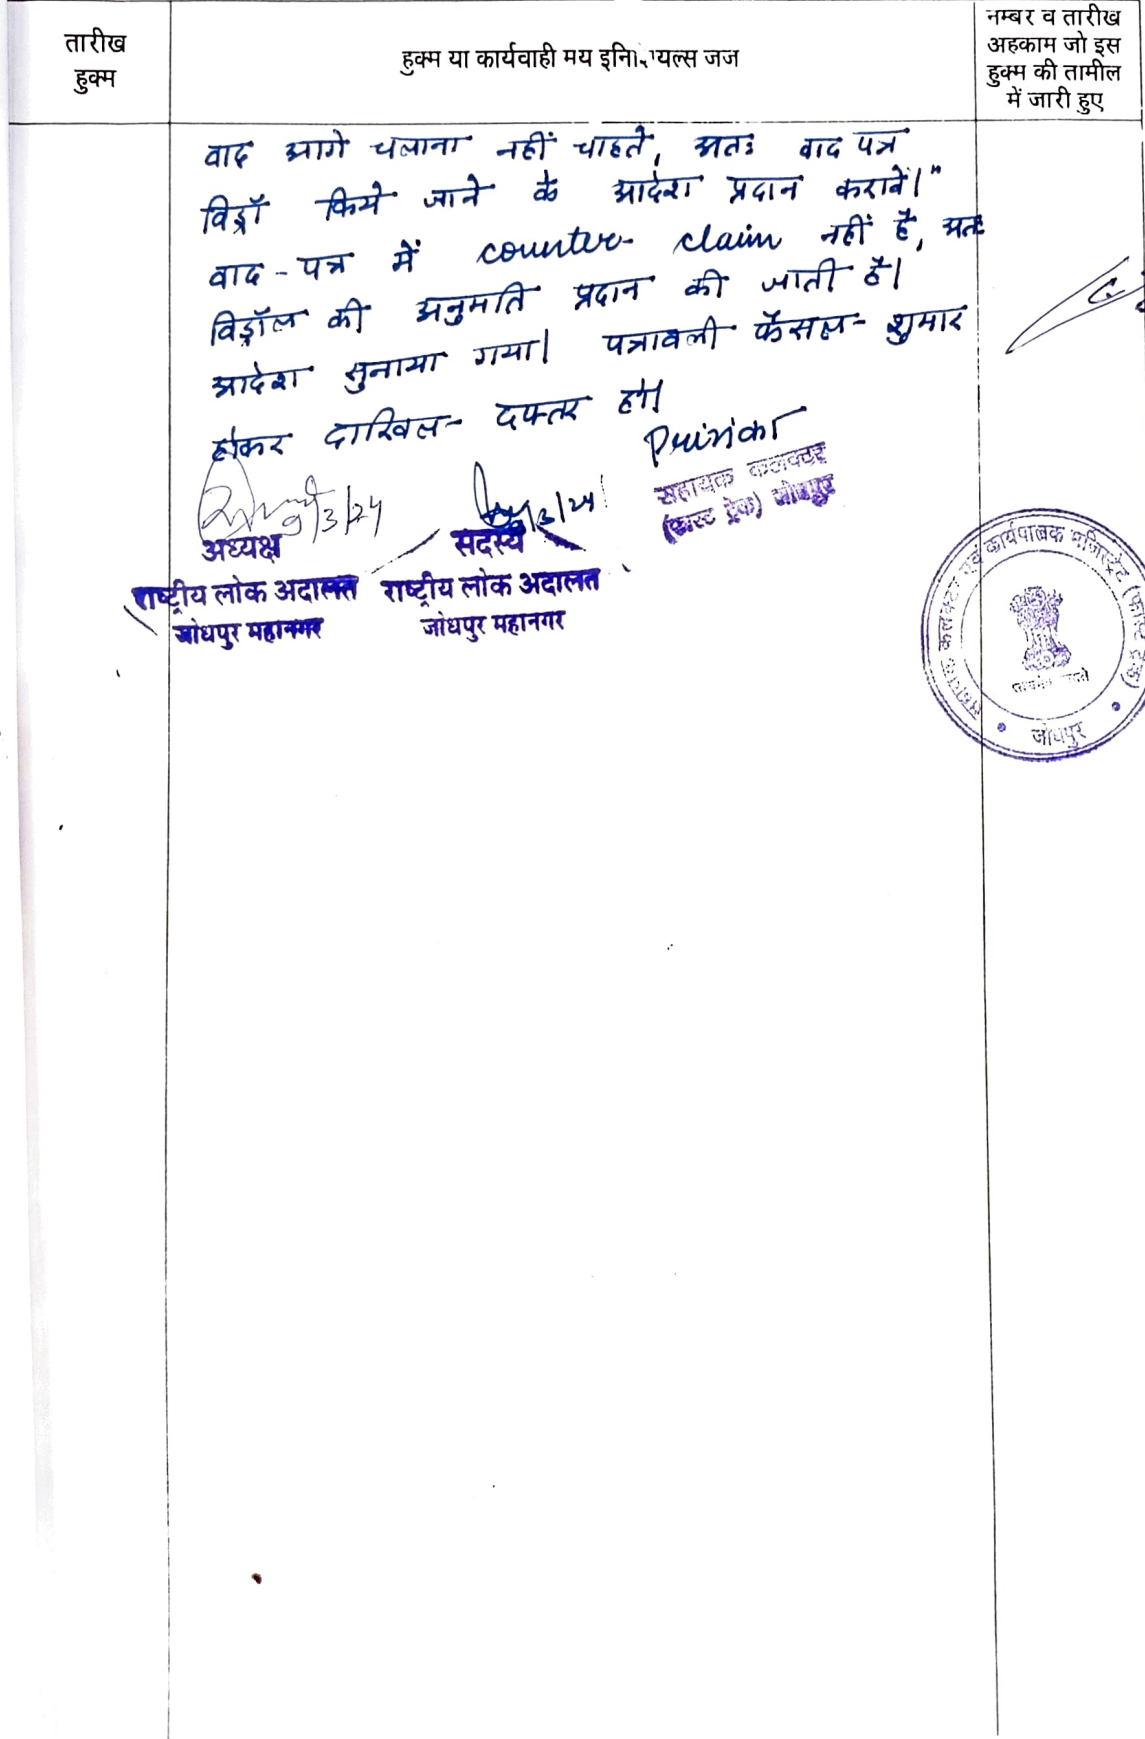 तारीख
हुक्म
हुक्म या कार्यवाही मय इनिशियल्स जज
नम्बर व तारीख
अहकाम जो इस
हुक्म की तामील
में जारी हुए
वाद आगे चलाना नहीं चाहते, अतः वाद पत्र
विड्रॉ किये जाने के आदेश प्रदान करावें।"
वाद-पत्र में counter claim नहीं है, अतः
विड्रॉल की अनुमति प्रदान की जाती है।
आदेश सुनाया गया। पत्रावली फैसल-शुमार
होकर दाखिल-दफ्तर हो।
Prinka
सहायक कलक्टर
(फास्ट ट्रेक) जोधपुर
9/3/24
अध्यक्ष
राष्ट्रीय लोक अदालत
जोधपुर महानगर
9/3/24
सदस्य
राष्ट्रीय लोक अदालत
जोधपुर महानगर
सहायक कलक्टर एवं कार्यपालक मजिस्ट्रेट (फास्ट ट्रेक)
सत्यमेव जयते
जोधपुर